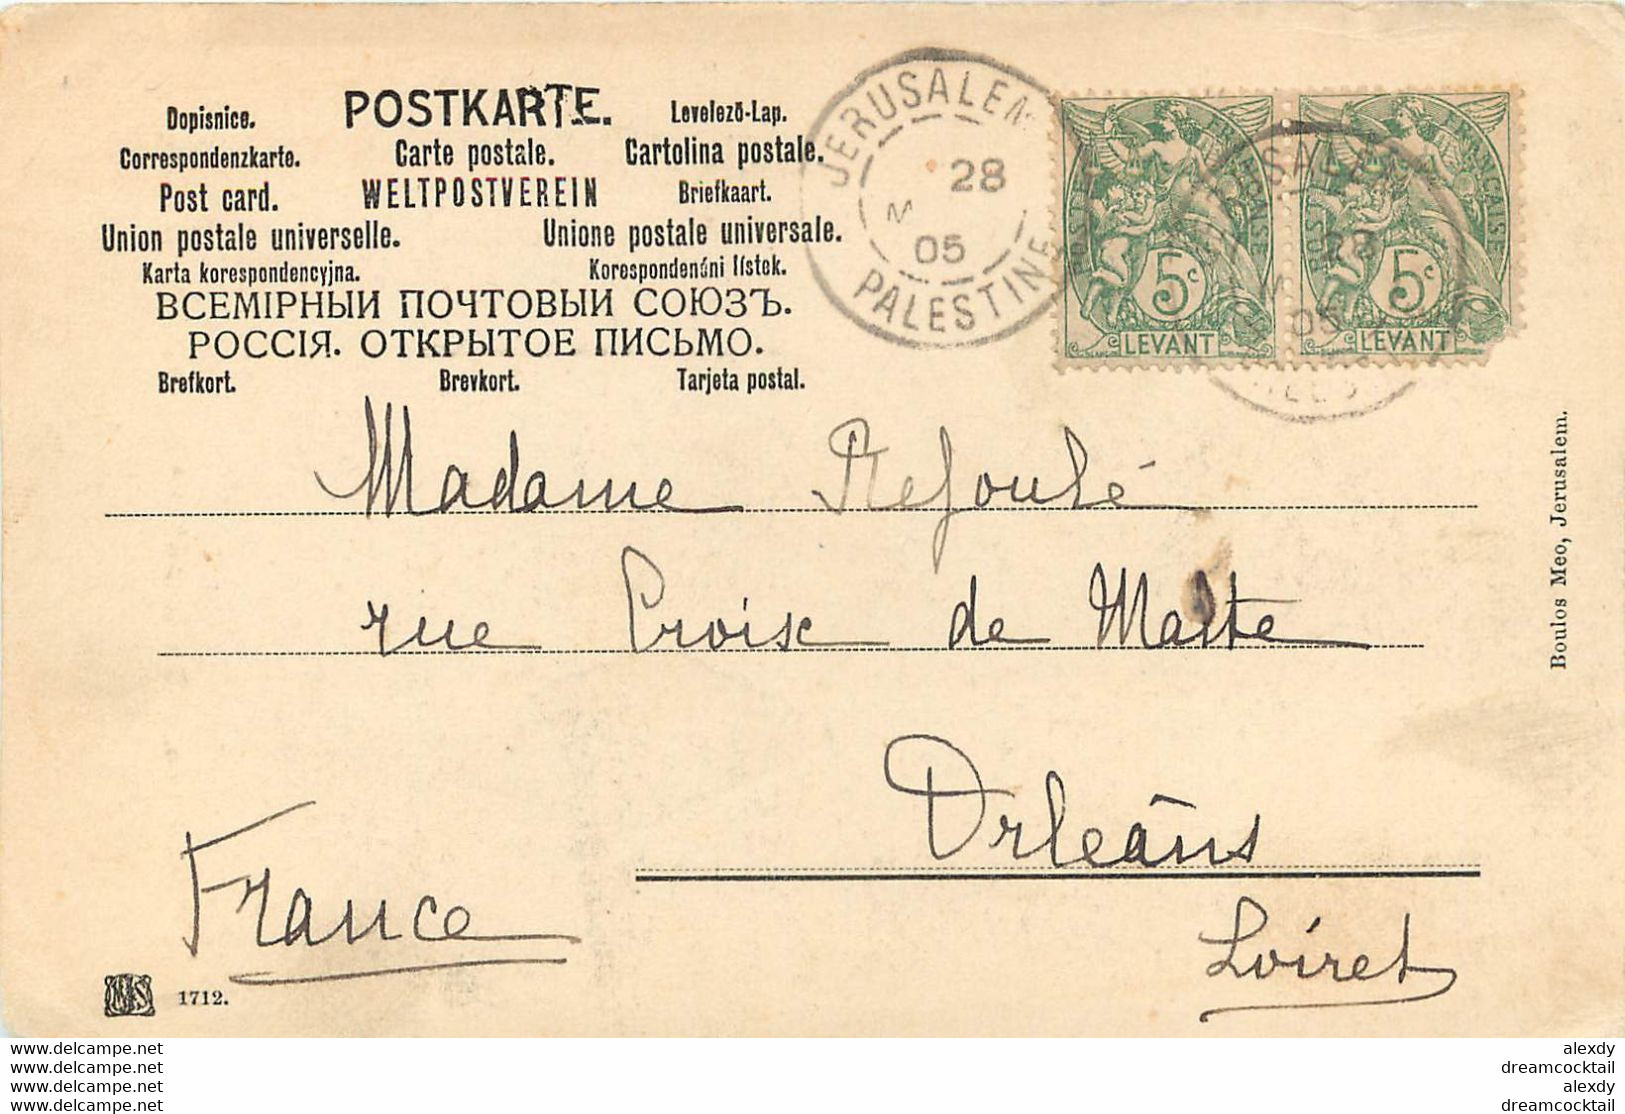 POSTKARTE.
Dopisnice. Levelező-Lap.
Correspondenzkarte. Carte postale. Cartolina postale.
Post card. WELTPOSTVEREIN Briefkaart.
Union postale universelle. Unione postale universale.
Karta korespondencyjna. Korespondenčni listek.
ВСЕМІРНЫЙ ПОЧТОВЫЙ СОЮЗЪ.
РОССІЯ. ОТКРЫТОЕ ПИСЬМО.
Brefkort. Brevkort. Tarjeta postal.
JERUSALEM
28
05
PALESTINE
5c
LEVANT
FRANÇAISE
5c
LEVANT
28
05
Madame Refoulé
rue Croix de Malte
Orléans
Loiret
France
1712.
Boulos Meo, Jerusalem.
www.delcampe.net
www.delcampe.net
www.delcampe.net
www.delcampe.net
alexdy
dreamcocktail
alexdy
dreamcocktail